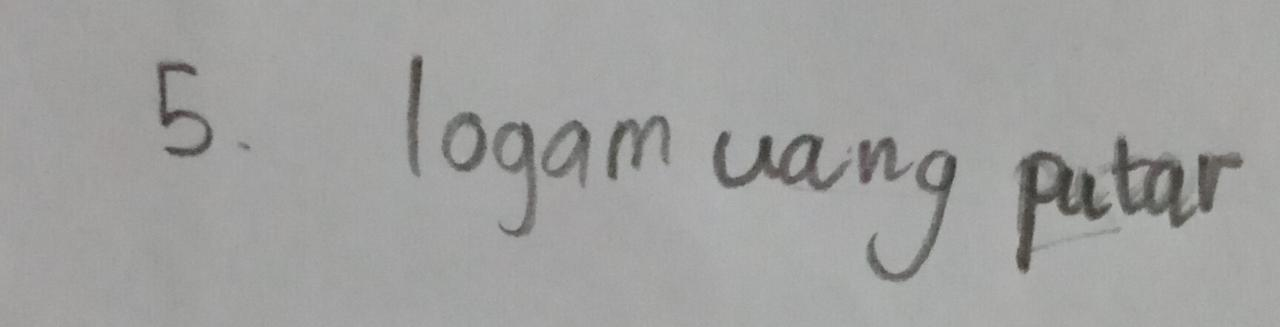 5. logam uang putar